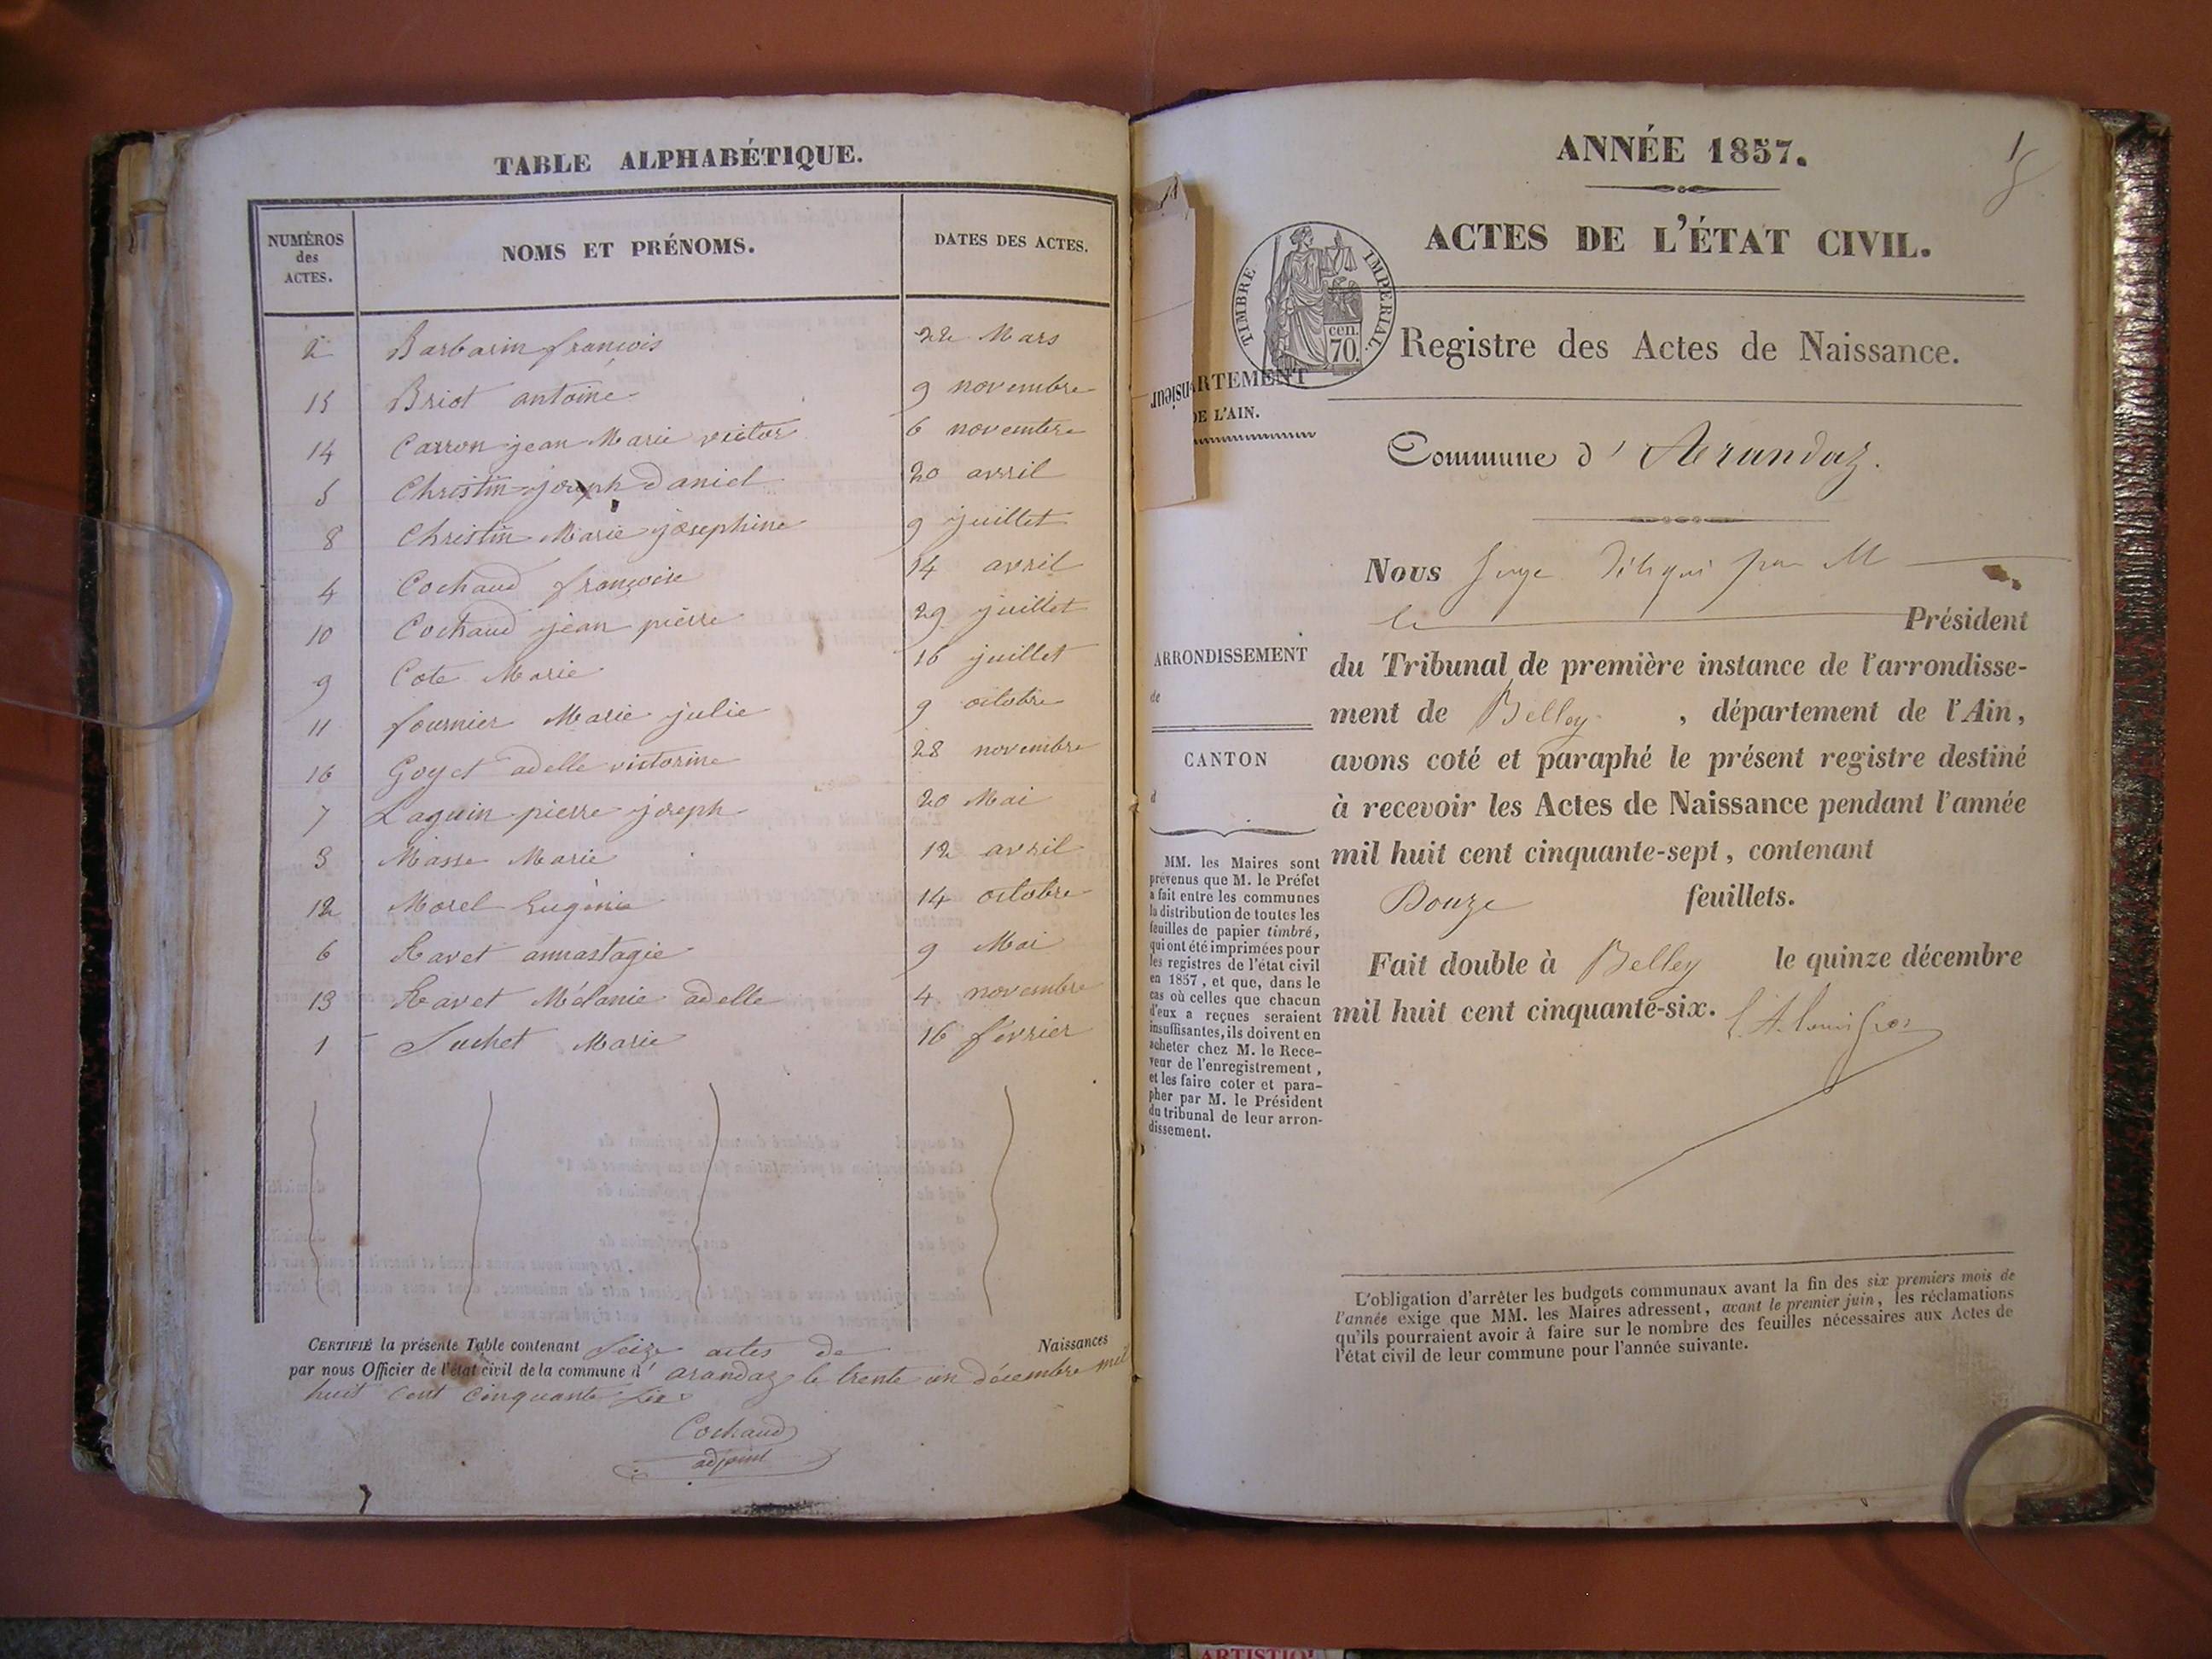 TABLE ALPHABÉTIQUE.
NUMÉROS des ACTES. NOMS ET PRÉNOMS. DATES DES ACTES.
2 Barbarin françois 22 Mars
15 Briot antoine 9 novembre
14 Carron jean Marie victor 6 novembre
5 Christin joseph daniel 20 avril
8 Christin Marie josephine 9 juillet
4 Cochaud françoise 14 avril
10 Cochaud jean pierre 29 juillet
9 Cote Marie 16 juillet
11 fournier Marie julie 9 octobre
16 Goyet adelle victorine 28 novembre
7 Laguin pierre joseph 20 Mai
3 Masse Marie 12 avril
12 Morel Eugénie 14 octobre
6 Ravet annastagie 9 Mai
13 Ravet Mélanie adelle 4 novembre
1 Suchet Marie 16 février
CERTIFIÉ la présente Table contenant Seize actes de Naissances
par nous Officier de l'état civil de la commune d' arandaz le trente un décembre mil
huit cent cinquante six
Cochaud
adjoint
ANNÉE 1857.
ACTES DE L'ÉTAT CIVIL.
TIMBRE IMPERIAL.
cen.
70.
Registre des Actes de Naissance.
ARTEMENT
DE L'AIN.
Commune d' Arandaz.
Nous juge délégué par M
le Président
du Tribunal de première instance de l'arrondisse-
ment de Belley , département de l'Ain,
avons coté et paraphé le présent registre destiné
à recevoir les Actes de Naissance pendant l'année
mil huit cent cinquante-sept, contenant
Douze feuillets.
Fait double à Belley le quinze décembre
mil huit cent cinquante-six.
ARRONDISSEMENT
de
CANTON
d
MM. les Maires sont
prévenus que M. le Préfet
a fait entre les communes
la distribution de toutes les
feuilles de papier timbré,
qui ont été imprimées pour
les registres de l'état civil
en 1857, et que, dans le
cas où celles que chacun
d'eux a reçues seraient
insuffisantes, ils doivent en
acheter chez M. le Rece-
veur de l'enregistrement,
et les faire coter et para-
pher par M. le Président
du tribunal de leur arron-
dissement.
L'obligation d'arrêter les budgets communaux avant la fin des six premiers mois de
l'année exige que MM. les Maires adressent, avant le premier juin, les réclamations
qu'ils pourraient avoir à faire sur le nombre des feuilles nécessaires aux Actes de
l'état civil de leur commune pour l'année suivante.